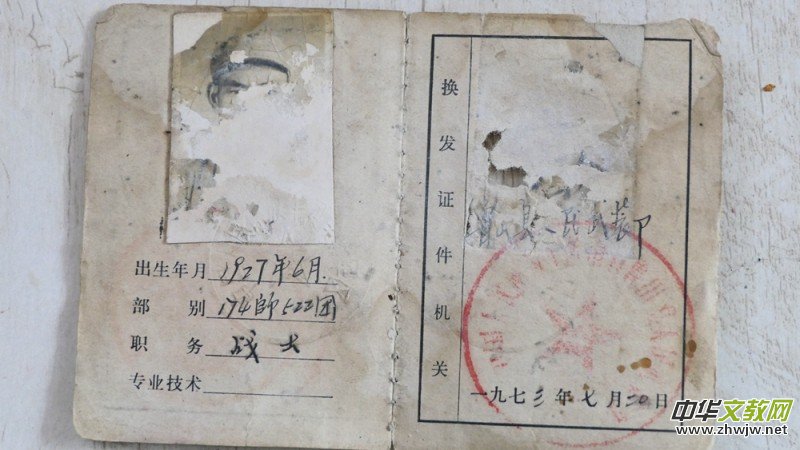 出生年月 1927年6月.
部别 174師522团
职务 战士
专业技术
换发证件机关
县人民武装部
一九七三年七月二0日
中华文教网
www.zhwjw.net